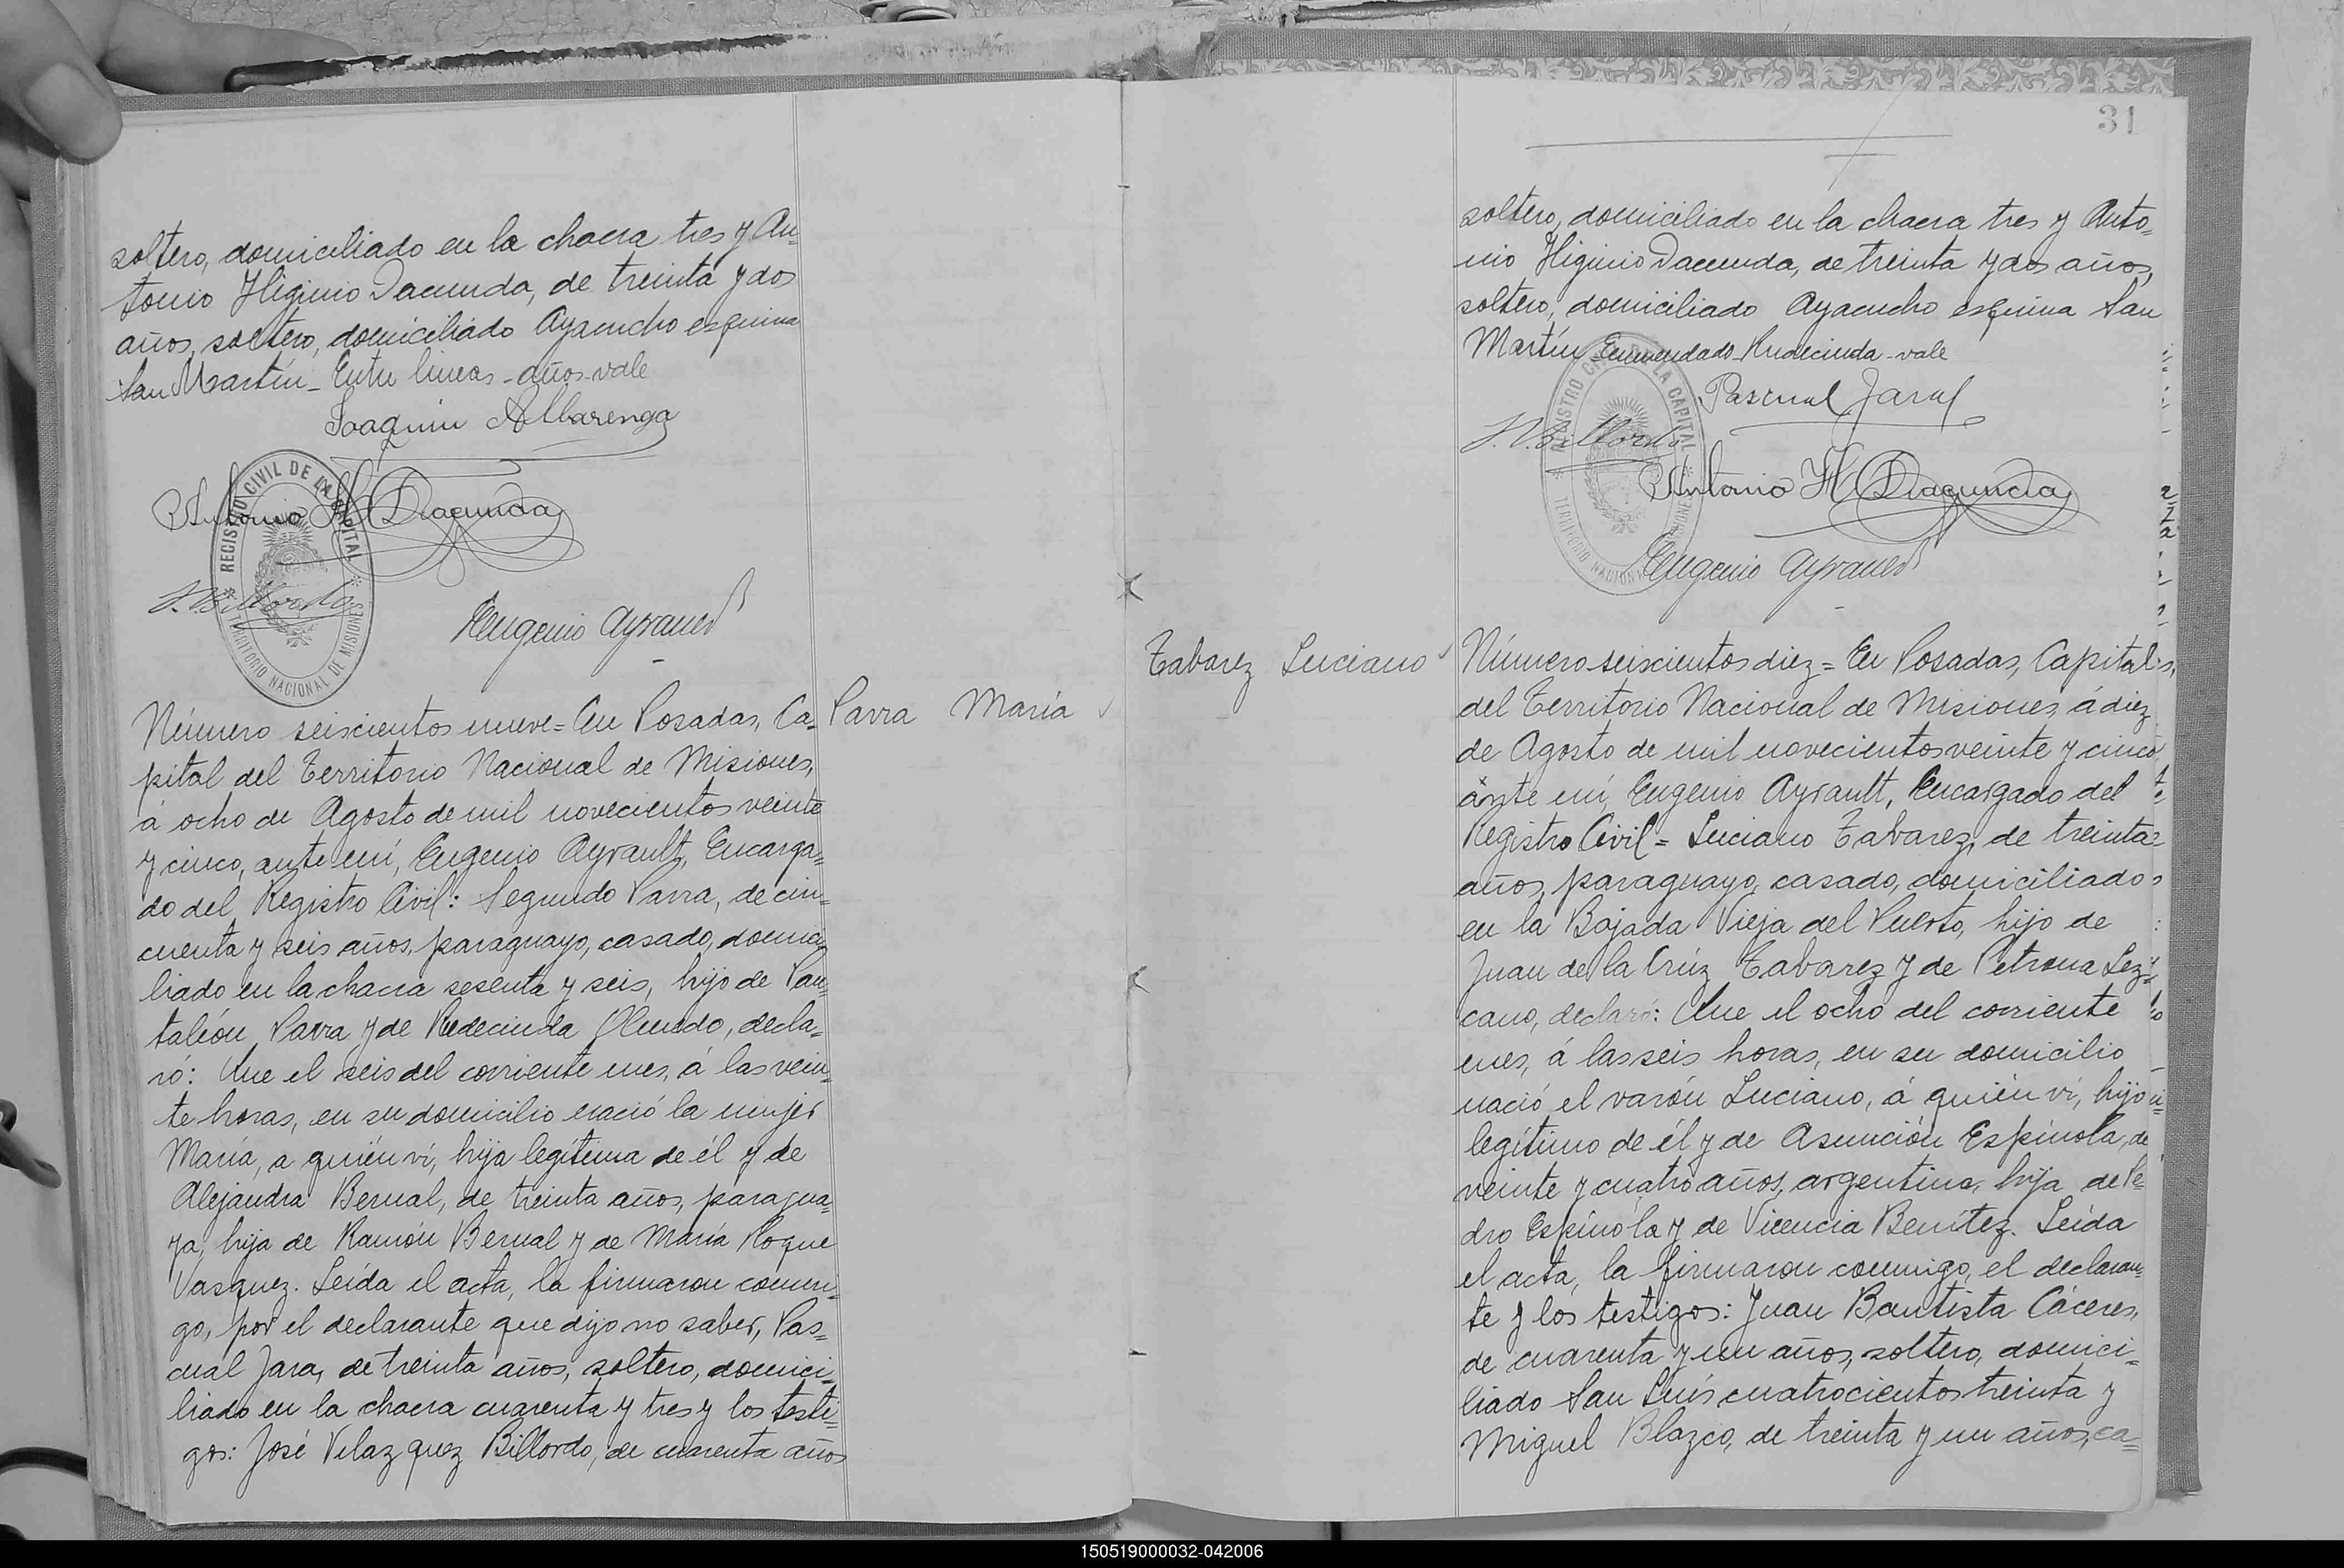 soltero, domiciliado en la chacra tres y An-
tonio Higinio Dacunda, de treinta y dos
años, soltero, domiciliado Ayacucho esquina
San Martín_ Entre lineas - años - vale
Joaquin Albarenga
Antonio H Dacunda
REGISTRO CIVIL DE LA CAPITAL
TERRITORIO NACIONAL DE MISIONES
J. V. Billordo
Eugenio Ayrault
Número seiscientos nueve = En Posadas, Ca-
pital del Territorio Nacional de Misiones,
á ocho de Agosto de mil novecientos veinte
y cinco, ante mí, Eugenio Ayrault, Encarga-
do del Registro Civil: Segundo Parra, de cin-
cuenta y seis años, paraguayo, casado, domici-
liado en la chacra sesenta y seis, hijo de Pan-
taleón Parra y de Rudecinda Olmedo, decla-
ró: Que el seis del corriente mes, á las vein-
te horas, en su domicilio nació la mujer
María, a quién ví, hija legítima de él y de
Alejandra Bernal, de treinta años, paragua-
ya, hija de Ramón Bernal y de María Roque
Vasquez. Leída el acta, la firmaron conmi-
go, por el declarante que dijo no saber, Pas-
cual Jara, de treinta años, soltero, domici-
liado en la chacra cuarenta y tres y los testi-
gos: José Velazquez Billordo, de cuarenta años
Parra María
31
soltero, domiciliado en la chacra tres y Anto-
nio Higinio Dacunda, de treinta y dos años,
soltero, domiciliado Ayacucho esquina San
Martín_ Enmendado - Rudecinda - vale
Pascual Jara
J. V. Billordo
REGISTRO CIVIL DE LA CAPITAL
TERRITORIO NACIONAL DE MISIONES
Antonio H Dacunda
Eugenio Ayrault
Tabarez Luciano
Número seiscientos diez = En Posadas, Capital
del Territorio Nacional de Misiones, á diez
de Agosto de mil novecientos veinte y cinco
ante mí, Eugenio Ayrault, Encargado del
Registro Civil = Luciano Tabarez, de treinta
años, paraguayo, casado, domiciliado
en la Bajada Vieja del Puerto, hijo de
Juan de la Crúz Tabarez y de Petrona Lez-
cano, declaró: Que el ocho del corriente
mes, á las seis horas, en su domicilio
nació el varón Luciano, á quién ví, hijo
legítimo de él y de Asunción Espínola, de
veinte y cuatro años, argentina, hija de Pe-
dro Espínola y de Vicencia Benítez. Leída
el acta, la firmaron conmigo, el declaran-
te y los testigos: Juan Bautista Cáceres,
de cuarenta y un años, soltero, domici-
liado San Luís cuatrocientos treinta y
Miguel Blazco, de treinta y un años, ca-
150519000032-042006